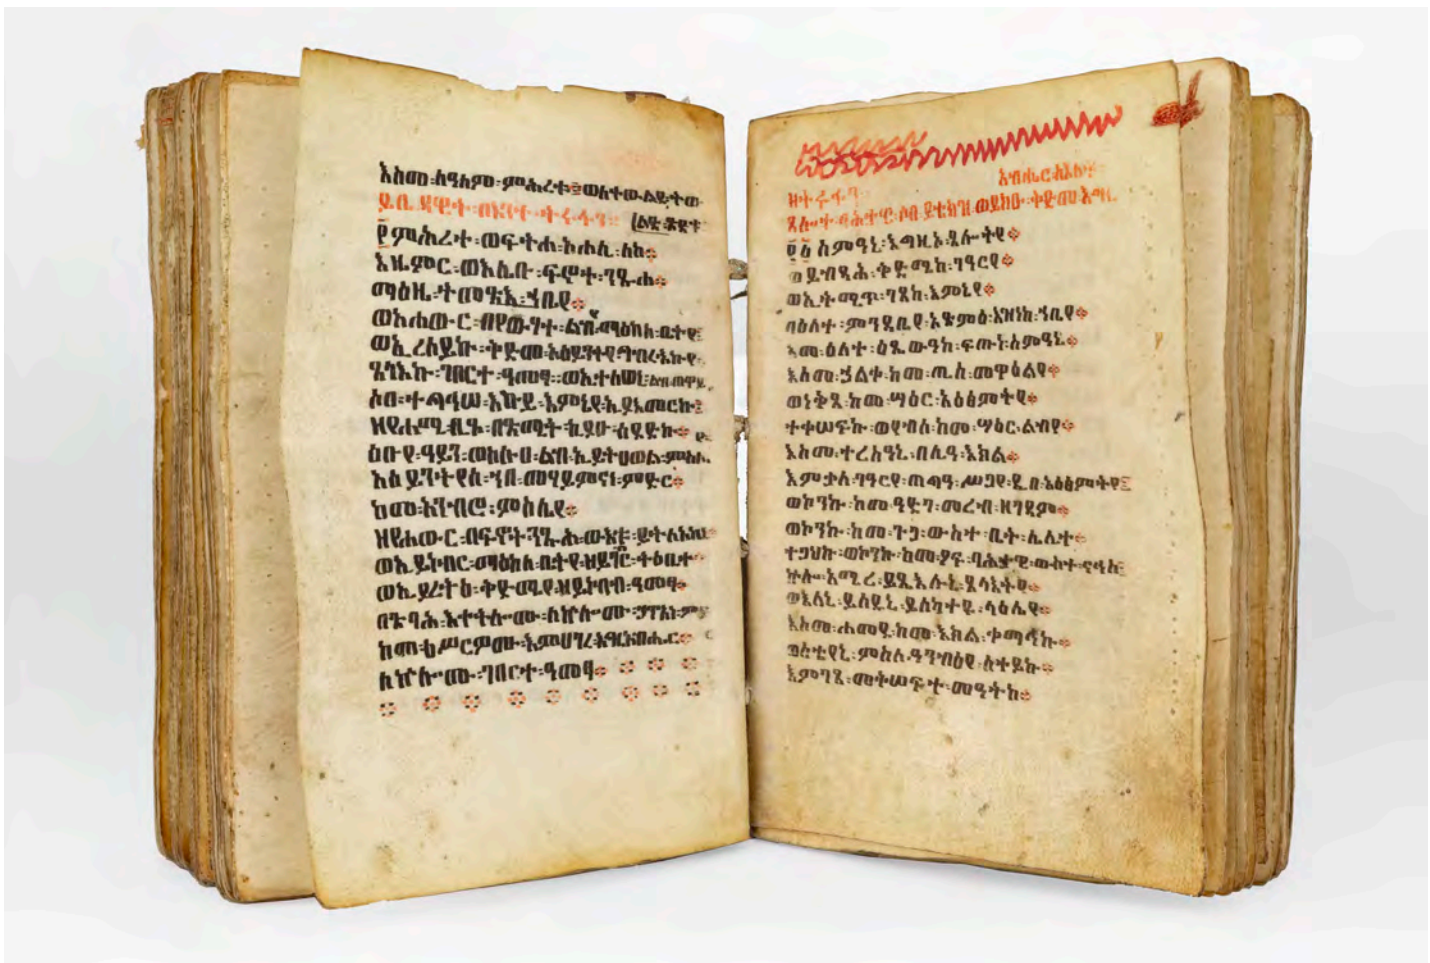 እስመ፡ለዓለም፡ምሕረቱ፤ወለተውልደ፡ትው
ዳዊት፡በእንተ፡ትሩፋን።
፻ምሕረተ፡ወፍትሐ፡አሐሊ፡ለከ።
እዜምር፡ወእሌቡ፡ፍኖተ፡ንጹሐ።
ማዕዜ፡ትመጽእ፡ኀቤየ።
ወአሐውር፡በየውሃተ፡ልብ፡ማዕከለ፡ቤትየ፤
ወኢረሰይኩ፡ቅድመ፡አዕይንትየ፡ግብረ፡እኩየ።
ጸላእኩ፡ገበርተ፡ዓመፃ።ወኢተለወኒ፡ልብ፡ጠዋይ
ሶበ፡ተጣዓሠ፡እኩይ፡እምኔየ፡ኢያእመርኩ፤
ዘየሐሚ፡ቢጾ፡በጽሚት፡ኪያሁ፡ሰደድኩ።
ዕቡየ፡ዓይን፡ወስሱዐ፡ልብ፡ኢይትሀወል፡ምስሌ
አዕይንትየሰ፡ኀበ፡መሃይምናነ፡ምድር።
ከመ፡አንብሮ፡ምስሌየ።
ዘየሐውር፡በፍኖት፡ንጹሕ፡ውእቱ፡ይትለአከኒ
ወኢይነብር፡ማዕከለ፡ቤትየ፡ዘይገብር፡ትዕቢተ
ወኢያረትዕ፡ቅድሜየ፡ዘይነብብ፡ዓመፃ።
በጽባሕ፡እቀትሎሙ፡ለኵሎሙ፡ኃጥአነ፡ም
ከመ፡እሥርዎሙ፡እምሀገረ፡እግዚአብሔር።
ለኵሎሙ፡ገበርተ፡ዓመፃ።
ዘትሩፋን
ጸሎት፡ባሕታዊ፡ሶበ፡ይቴክዝ፡ወይክዑ፡ቅድመ፡እግዚ
፻፩ስምዓኒ፡እግዚኦ፡ጸሎትየ።
ወይብጻሕ፡ቅድሜከ፡ገዓርየ።
ወኢትሚጥ፡ገጸከ፡እምኔየ።
በዕለተ፡ምንዳቤየ፡አጽምዕ፡እዝነከ፡ኀቤየ።
አመ፡ዕለተ፡እጼውዓከ፡ፍጡነ፡ስምዓኒ።
እስመ፡ኃልቀ፡ከመ፡ጢስ፡መዋዕልየ።
ወነቅጸ፡ከመ፡ሣዕር፡አዕፅምትየ።
ተቀሠፍኩ፡ወየብሰ፡ከመ፡ሣዕር፡ልብየ።
እስመ፡ተረስዓኒ፡በሊዓ፡እክል።
እምቃለ፡ገዓርየ፡ጠግዓ፡ሥጋየ፡ዲበ፡አዕፅምትየ፤
ወኮንኩ፡ከመ፡ዓድገ፡መረብ፡ዘገዳም።
ወኮንኩ፡ከመ፡ጉጓ፡ውስተ፡ቤት፡ሌሊተ።
ተጋህኩ፡ወኮንኩ፡ከመ፡ዖፍ፡ባሕታዊ፡ውስተ፡ናሕስ
ኵሎ፡አሚረ፡ይጼእሉኒ፡ጸላእትየ።
ወእለኒ፡ይሴብሑኒ፡ይስካተዩ፡ላዕሌየ።
እስመ፡ሐመደ፡ከመ፡እክል፡ቀማሕኩ።
ወስቴየኒ፡ምስለ፡ዓንብዕየ፡ቶስሕኩ።
እምገጸ፡መቅሠፍተ፡መዓትከ።